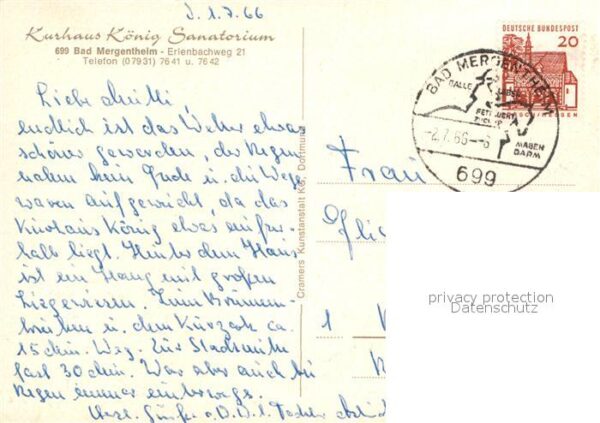 D. 1.7.66
Kurhaus König Sanatorium
699 Bad Mergentheim - Erlenbachweg 21
Telefon (07931) 7641 u. 7642
Liebe Mutti,
endlich ist das Wetter etwas
schöner geworden, der Regen
nahm kein Ende u. die Wege
waren aufgeweicht, da das
Kurhaus König etwas außer-
halb liegt. Hinter dem Haus
ist ein Hang mit großen
Liegewiesen. Zum Brunnen-
trinken u. dem Kurpark ca.
15 Min. Weg. Zur Stadtmitte
fast 30 Min. War aber auch bei
Regen immer unterwegs.
Herzl. Grüße
Cramers Kunstanstalt KG, Dortmund
DEUTSCHE BUNDESPOST
20
BAD MERGENTHEIM
GALLE
LEBER
ZUCKER
MAGEN
DARM
-2.7.66-6
699
Frau
1
privacy protection
Datenschutz